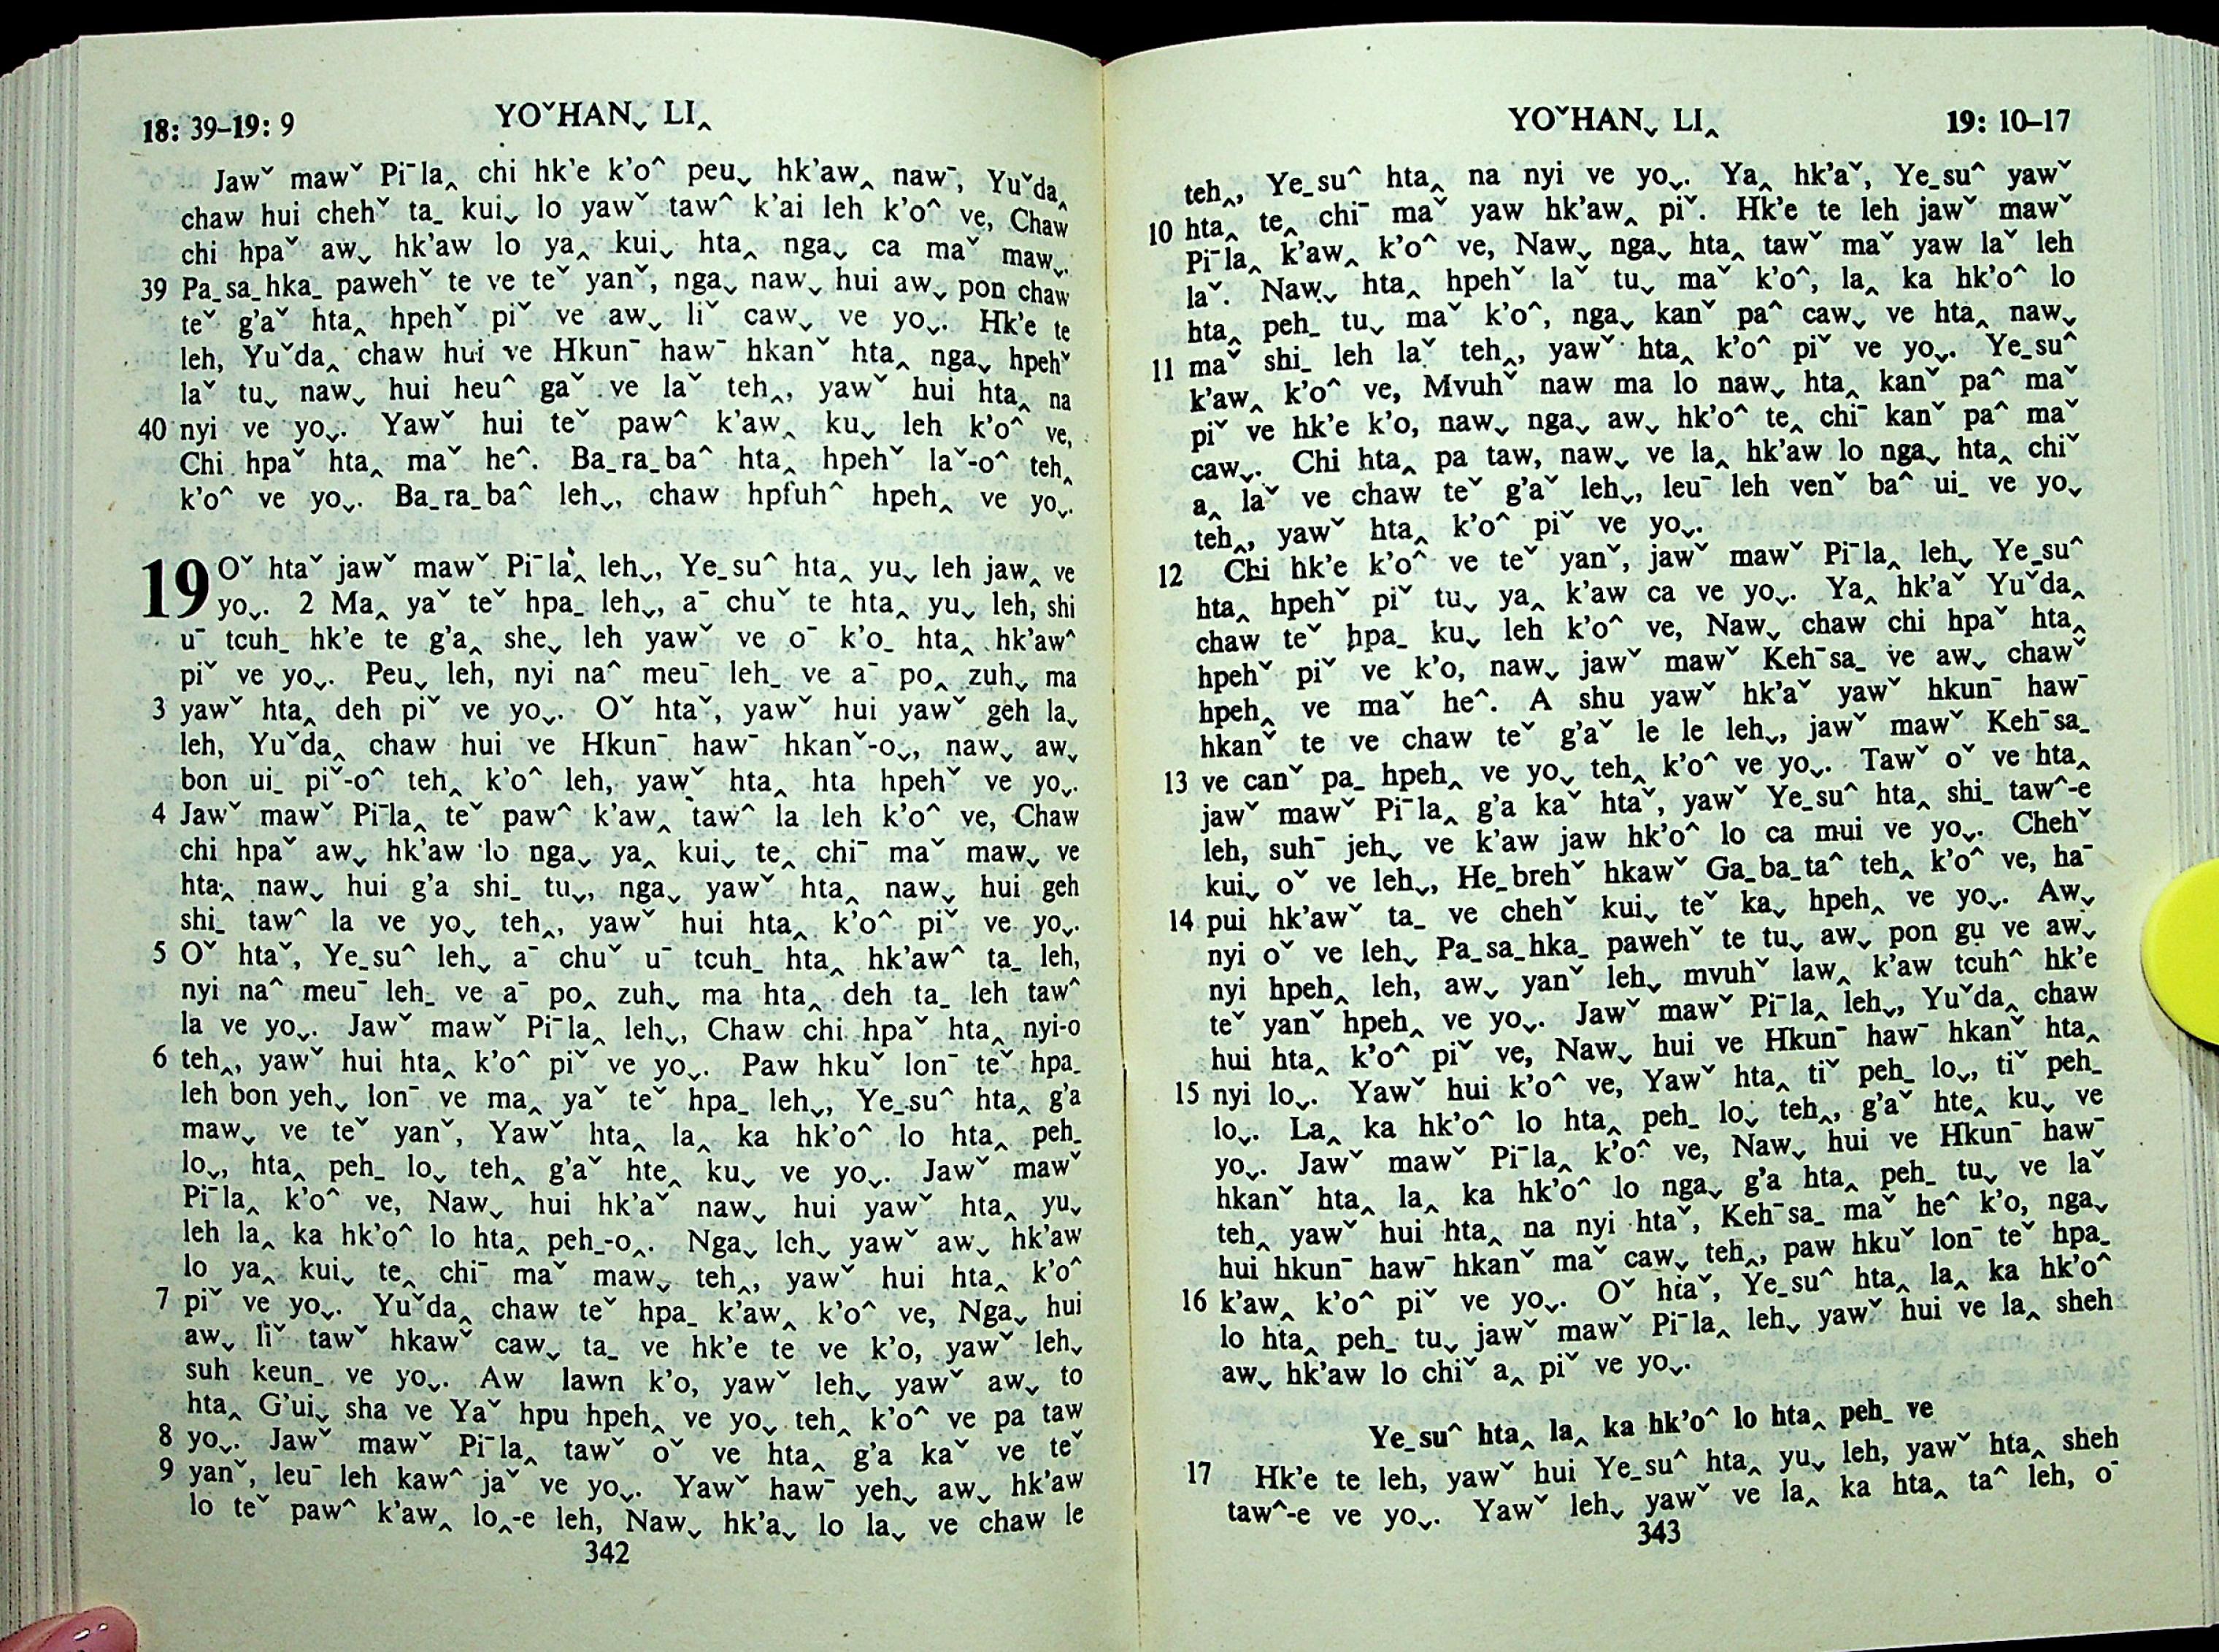 18: 39–19: 9
YOˇHANˬ LI‸
Jawˇ mawˇ Piˉla‸ chi hk'e k'o^ peuˬ hk'aw‸ nawˉ, Yuˇda‸
chaw hui chehˇ ta_ kuiˬ lo yawˇ taw^ k'ai leh k'o^ ve, Chaw
chi hpaˇ awˬ hk'aw lo ya‸ kuiˬ hta‸ ngaˬ ca maˇ mawˬ.
39 Pa_sa_hka_ pawehˇ te ve teˇ yanˇ, ngaˬ nawˬ hui awˬ pon chaw
teˇ g'aˇ hta‸ hpehˇ piˇ ve awˬ liˇ cawˬ ve yoˬ. Hk'e te
leh, Yuˇda‸ chaw hui ve Hkunˉ hawˉ hkanˇ hta‸ ngaˬ hpehˇ
laˇ tuˬ nawˬ hui heu^ gaˇ ve laˇ teh‸, yawˇ hui hta‸ na
40 nyi ve yoˬ. Yawˇ hui teˇ paw^ k'aw‸ kuˬ leh k'o^ ve,
Chi hpaˇ hta‸ maˇ he^. Ba_ra_ba^ hta‸ hpehˇ laˇ-o^ teh‸
k'o^ ve yoˬ. Ba_ra_ba^ lehˬ, chaw hpfuh^ hpeh‸ ve yoˬ.
19 Oˇ htaˇ jawˇ mawˇ Piˉla‸ lehˬ, Ye_su^ hta‸ yuˬ leh jaw‸ ve
yoˬ. 2 Ma‸ yaˇ teˇ hpa_ lehˬ, aˉ chuˇ te hta‸ yuˬ leh, shi
uˉ tcuh_ hk'e te g'a‸ sheˬ leh yawˇ ve oˉ k'o_ hta‸ hk'aw^
piˇ ve yoˬ. Peuˬ leh, nyi na^ meuˉ leh_ ve aˉ po‸ zuhˬ ma
3 yawˇ hta‸ deh piˇ ve yoˬ. Oˇ htaˇ, yawˇ hui yawˇ geh laˬ
leh, Yuˇda‸ chaw hui ve Hkunˉ hawˉ hkanˇ-oˬ, nawˬ awˬ
bon ui_ piˇ-o^ teh‸ k'o^ leh, yawˇ hta‸ hta hpehˇ ve yoˬ.
4 Jawˇ mawˇ Piˉla‸ teˇ paw^ k'aw‸ taw^ la leh k'o^ ve, Chaw
chi hpaˇ awˬ hk'aw lo ngaˬ ya‸ kuiˬ te‸ chiˉ maˇ mawˬ ve
hta‸ nawˬ hui g'a shi_ tuˬ, ngaˬ yawˇ hta‸ nawˬ hui geh
shi_ taw^ la ve yoˬ teh‸, yawˇ hui hta‸ k'o^ piˇ ve yoˬ.
5 Oˇ htaˇ, Ye_su^ lehˬ aˉ chuˇ uˉ tcuh_ hta‸ hk'aw^ ta_ leh,
nyi na^ meuˉ leh_ ve aˉ po‸ zuhˬ ma hta‸ deh ta_ leh taw^
la ve yoˬ. Jawˇ mawˇ Piˉla‸ lehˬ, Chaw chi hpaˇ hta‸ nyi-o
6 teh‸, yawˇ hui hta‸ k'o^ piˇ ve yoˬ. Paw hkuˇ lonˉ teˇ hpa_
leh bon yehˬ lonˉ ve ma‸ yaˇ teˇ hpa_ lehˬ, Ye_su^ hta‸ g'a
mawˬ ve teˇ yanˇ, Yawˇ hta‸ la‸ ka hk'o^ lo hta‸ peh_
loˬ, hta‸ peh_ loˬ teh‸ g'aˇ hte‸ kuˬ ve yoˬ. Jawˇ mawˇ
Piˉla‸ k'o^ ve, Nawˬ hui hk'aˇ nawˬ hui yawˇ hta‸ yuˬ
leh la‸ ka hk'o^ lo hta‸ peh_-o‸. Ngaˬ lehˬ yawˇ awˬ hk'aw
lo ya‸ kuiˬ te‸ chiˉ maˇ mawˬ teh‸, yawˇ hui hta‸ k'o^
7 piˇ ve yoˬ. Yuˇda‸ chaw teˇ hpa_ k'aw‸ k'o^ ve, Ngaˬ hui
awˬ liˇ tawˇ hkawˇ cawˬ ta_ ve hk'e te ve k'o, yawˇ lehˬ
suh keun_ ve yoˬ. Aw lawn k'o, yawˇ lehˬ yawˇ awˬ to
hta‸ G'uiˬ sha ve Yaˇ hpu hpeh‸ ve yoˬ teh‸ k'o^ ve pa taw
8 yoˬ. Jawˇ mawˇ Piˉla‸ tawˇ oˇ ve hta‸ g'a kaˇ ve teˇ
9 yanˇ, leuˉ leh kaw^ jaˇ ve yoˬ. Yawˇ hawˉ yehˬ awˬ hk'aw
lo teˇ paw^ k'aw‸ lo‸-e leh, Nawˬ hk'aˬ lo laˬ ve chaw le
342
YOˇHANˬ LI‸
19: 10–17
teh‸, Ye_su^ hta‸ na nyi ve yoˬ. Ya‸ hk'aˇ, Ye_su^ yawˇ
10 hta‸ te‸ chiˉ maˇ yaw hk'aw‸ piˇ. Hk'e te leh jawˇ mawˇ
Piˉla‸ k'aw‸ k'o^ ve, Nawˬ ngaˬ hta‸ tawˇ maˇ yaw laˇ leh
laˇ. Nawˬ hta‸ hpehˇ laˇ tuˬ maˇ k'o^, la‸ ka hk'o^ lo
hta‸ peh_ tuˬ maˇ k'o^, ngaˬ kanˇ pa^ cawˬ ve hta‸ nawˬ
11 maˇ shi_ leh laˇ teh‸, yawˇ hta‸ k'o^ piˇ ve yoˬ. Ye_su^
k'aw‸ k'o^ ve, Mvuhˇ naw ma lo nawˬ hta‸ kanˇ pa^ maˇ
piˇ ve hk'e k'o, nawˬ ngaˬ awˬ hk'o^ te‸ chiˉ kanˇ pa^ maˇ
cawˬ. Chi hta‸ pa taw, nawˬ ve la‸ hk'aw lo ngaˬ hta‸ chiˇ
a‸ laˇ ve chaw teˇ g'aˇ lehˬ, leuˉ leh venˇ ba^ ui_ ve yoˬ
teh‸, yawˇ hta‸ k'o^ piˇ ve yoˬ.
12 Chi hk'e k'o^ ve teˇ yanˇ, jawˇ mawˇ Piˉla‸ lehˬ Ye_su^
hta‸ hpehˇ piˇ tuˬ ya‸ k'aw ca ve yoˬ. Ya‸ hk'aˇ Yuˇda‸
chaw teˇ hpa_ kuˬ leh k'o^ ve, Nawˬ chaw chi hpaˇ hta‸
hpehˇ piˇ ve k'o, nawˬ jawˇ mawˇ Kehˉsa_ ve awˬ chawˇ
hpeh‸ ve maˇ he^. A shu yawˇ hk'aˇ yawˇ hkunˉ hawˉ
hkanˇ te ve chaw teˇ g'aˇ le le lehˬ, jawˇ mawˇ Kehˉsa_
13 ve canˇ pa_ hpeh‸ ve yoˬ teh‸ k'o^ ve yoˬ. Tawˇ oˇ ve hta‸
jawˇ mawˇ Piˉla‸ g'a kaˇ htaˇ, yawˇ Ye_su^ hta‸ shi_ taw^-e
leh, suhˉ jehˬ ve k'aw jaw hk'o^ lo ca mui ve yoˬ. Chehˇ
kuiˬ oˇ ve lehˬ, He_brehˇ hkawˇ Ga_ba_ta^ teh‸ k'o^ ve, haˉ
14 pui hk'awˇ ta_ ve chehˇ kuiˬ teˇ kaˬ hpeh‸ ve yoˬ. Awˬ
nyi oˇ ve lehˬ Pa_sa_hka_ pawehˇ te tuˬ awˬ pon gu ve awˬ
nyi hpeh‸ leh, awˬ yanˇ lehˬ mvuhˇ law‸ k'aw tcuh^ hk'e
teˇ yanˇ hpeh‸ ve yoˬ. Jawˇ mawˇ Piˉla‸ lehˬ, Yuˇda‸ chaw
hui hta‸ k'o^ piˇ ve, Nawˬ hui ve Hkunˉ hawˉ hkanˇ hta‸
15 nyi loˬ. Yawˇ hui k'o^ ve, Yawˇ hta‸ tiˇ peh_ loˬ, tiˇ peh_
loˬ. La‸ ka hk'o^ lo hta‸ peh_ loˬ teh‸, g'aˇ hte‸ kuˬ ve
yoˬ. Jawˇ mawˇ Piˉla‸ k'o^ ve, Nawˬ hui ve Hkunˉ hawˉ
hkanˇ hta‸ la‸ ka hk'o^ lo ngaˬ g'a hta‸ peh_ tuˬ ve laˇ
teh‸ yawˇ hui hta‸ na nyi htaˇ, Kehˉsa_ maˇ he^ k'o, ngaˬ
hui hkunˉ hawˉ hkanˇ maˇ cawˬ teh‸, paw hkuˇ lonˉ teˇ hpa_
16 k'aw‸ k'o^ piˇ ve yoˬ. Oˇ htaˇ, Ye_su^ hta‸ la‸ ka hk'o^
lo hta‸ peh_ tuˬ jawˇ mawˇ Piˉla‸ lehˬ yawˇ hui ve la‸ sheh
awˬ hk'aw lo chiˇ a‸ piˇ ve yoˬ.
Ye_su^ hta‸ la‸ ka hk'o^ lo hta‸ peh_ ve
17 Hk'e te leh, yawˇ hui Ye_su^ hta‸ yuˬ leh, yawˇ hta‸ sheh
taw^-e ve yoˬ. Yawˇ lehˬ yawˇ ve la‸ ka hta‸ ta^ leh, oˉ
343